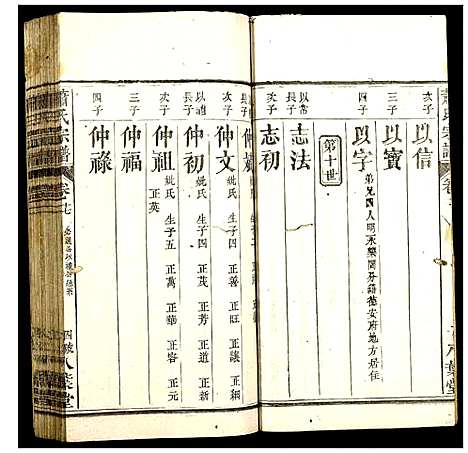 蕭氏宗譜
次子
以信
三子
以寶
四子
以字
弟兄四人明永樂間分籍德安府地方居住
第十世
以常長子
志法
次子
志初
長子
仲
次子
仲文
妣氏 生子四 正善 正旺 正讓 正稱
仲初
妣氏 生子四 正茂 正芳 正道 正新
次子
仲祖
妣氏 生子五 正萬 正華 正容 正元
正英
三子
仲福
四子
仲祿
蕭氏宗譜
卷
四
八葉堂